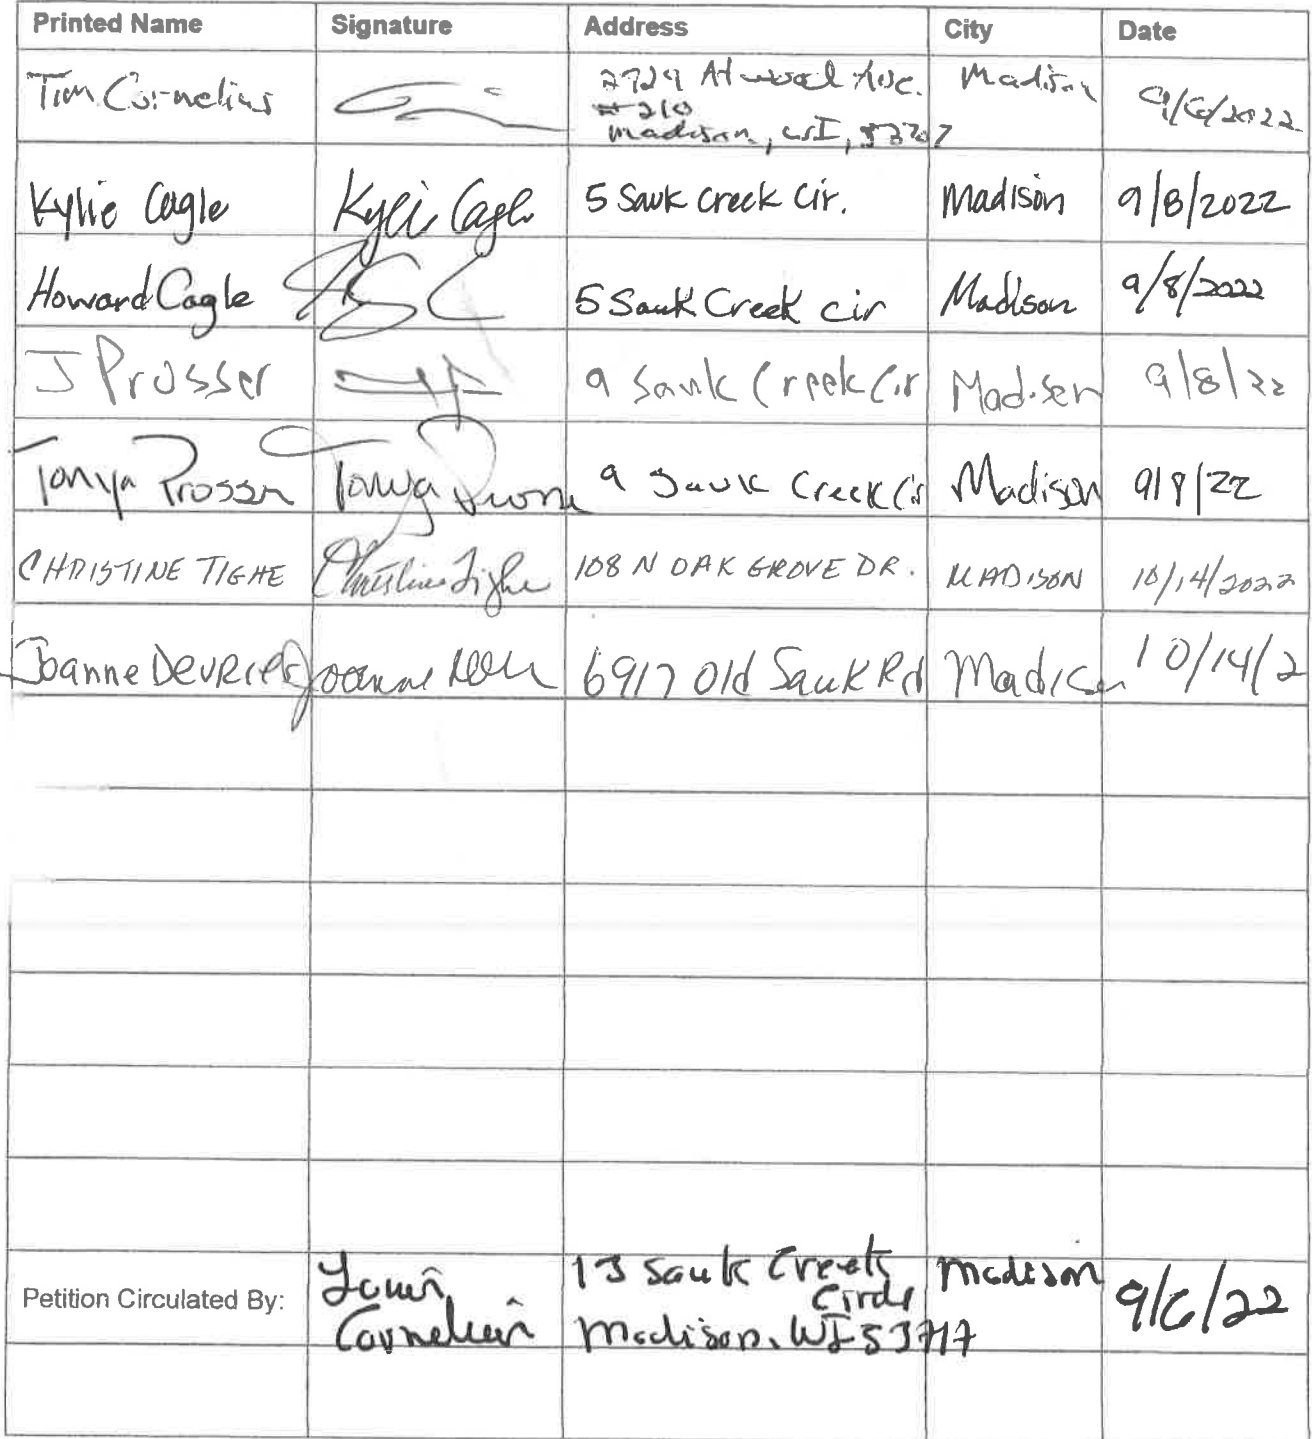 Printed Name Signature Address City Date
Tim Cornelius 2929 Atwood Ave. Madison 9/6/2022
#210
Madison, WI, 53707
Kylie Cagle Kylie Cagle 5 Sauk Creek Cir. Madison 9/8/2022
Howard Cagle 5 Sauk Creek cir Madison 9/8/2022
J Prosser 9 Sauk Creek Cir Madison 9/8/22
Tanya Prosser Tanya 9 Sauk Creek Cir Madison 9/8/22
CHRISTINE TIGHE Christine Tighe 108 N OAK GROVE DR. MADISON 10/14/2022
Joanne DeVRIES Joanne 6917 Old Sauk Rd Madison 10/14/2
Petition Circulated By: 13 Sauk Creek Madison 9/6/22
Circle
Cornelius Madison, WI 53717